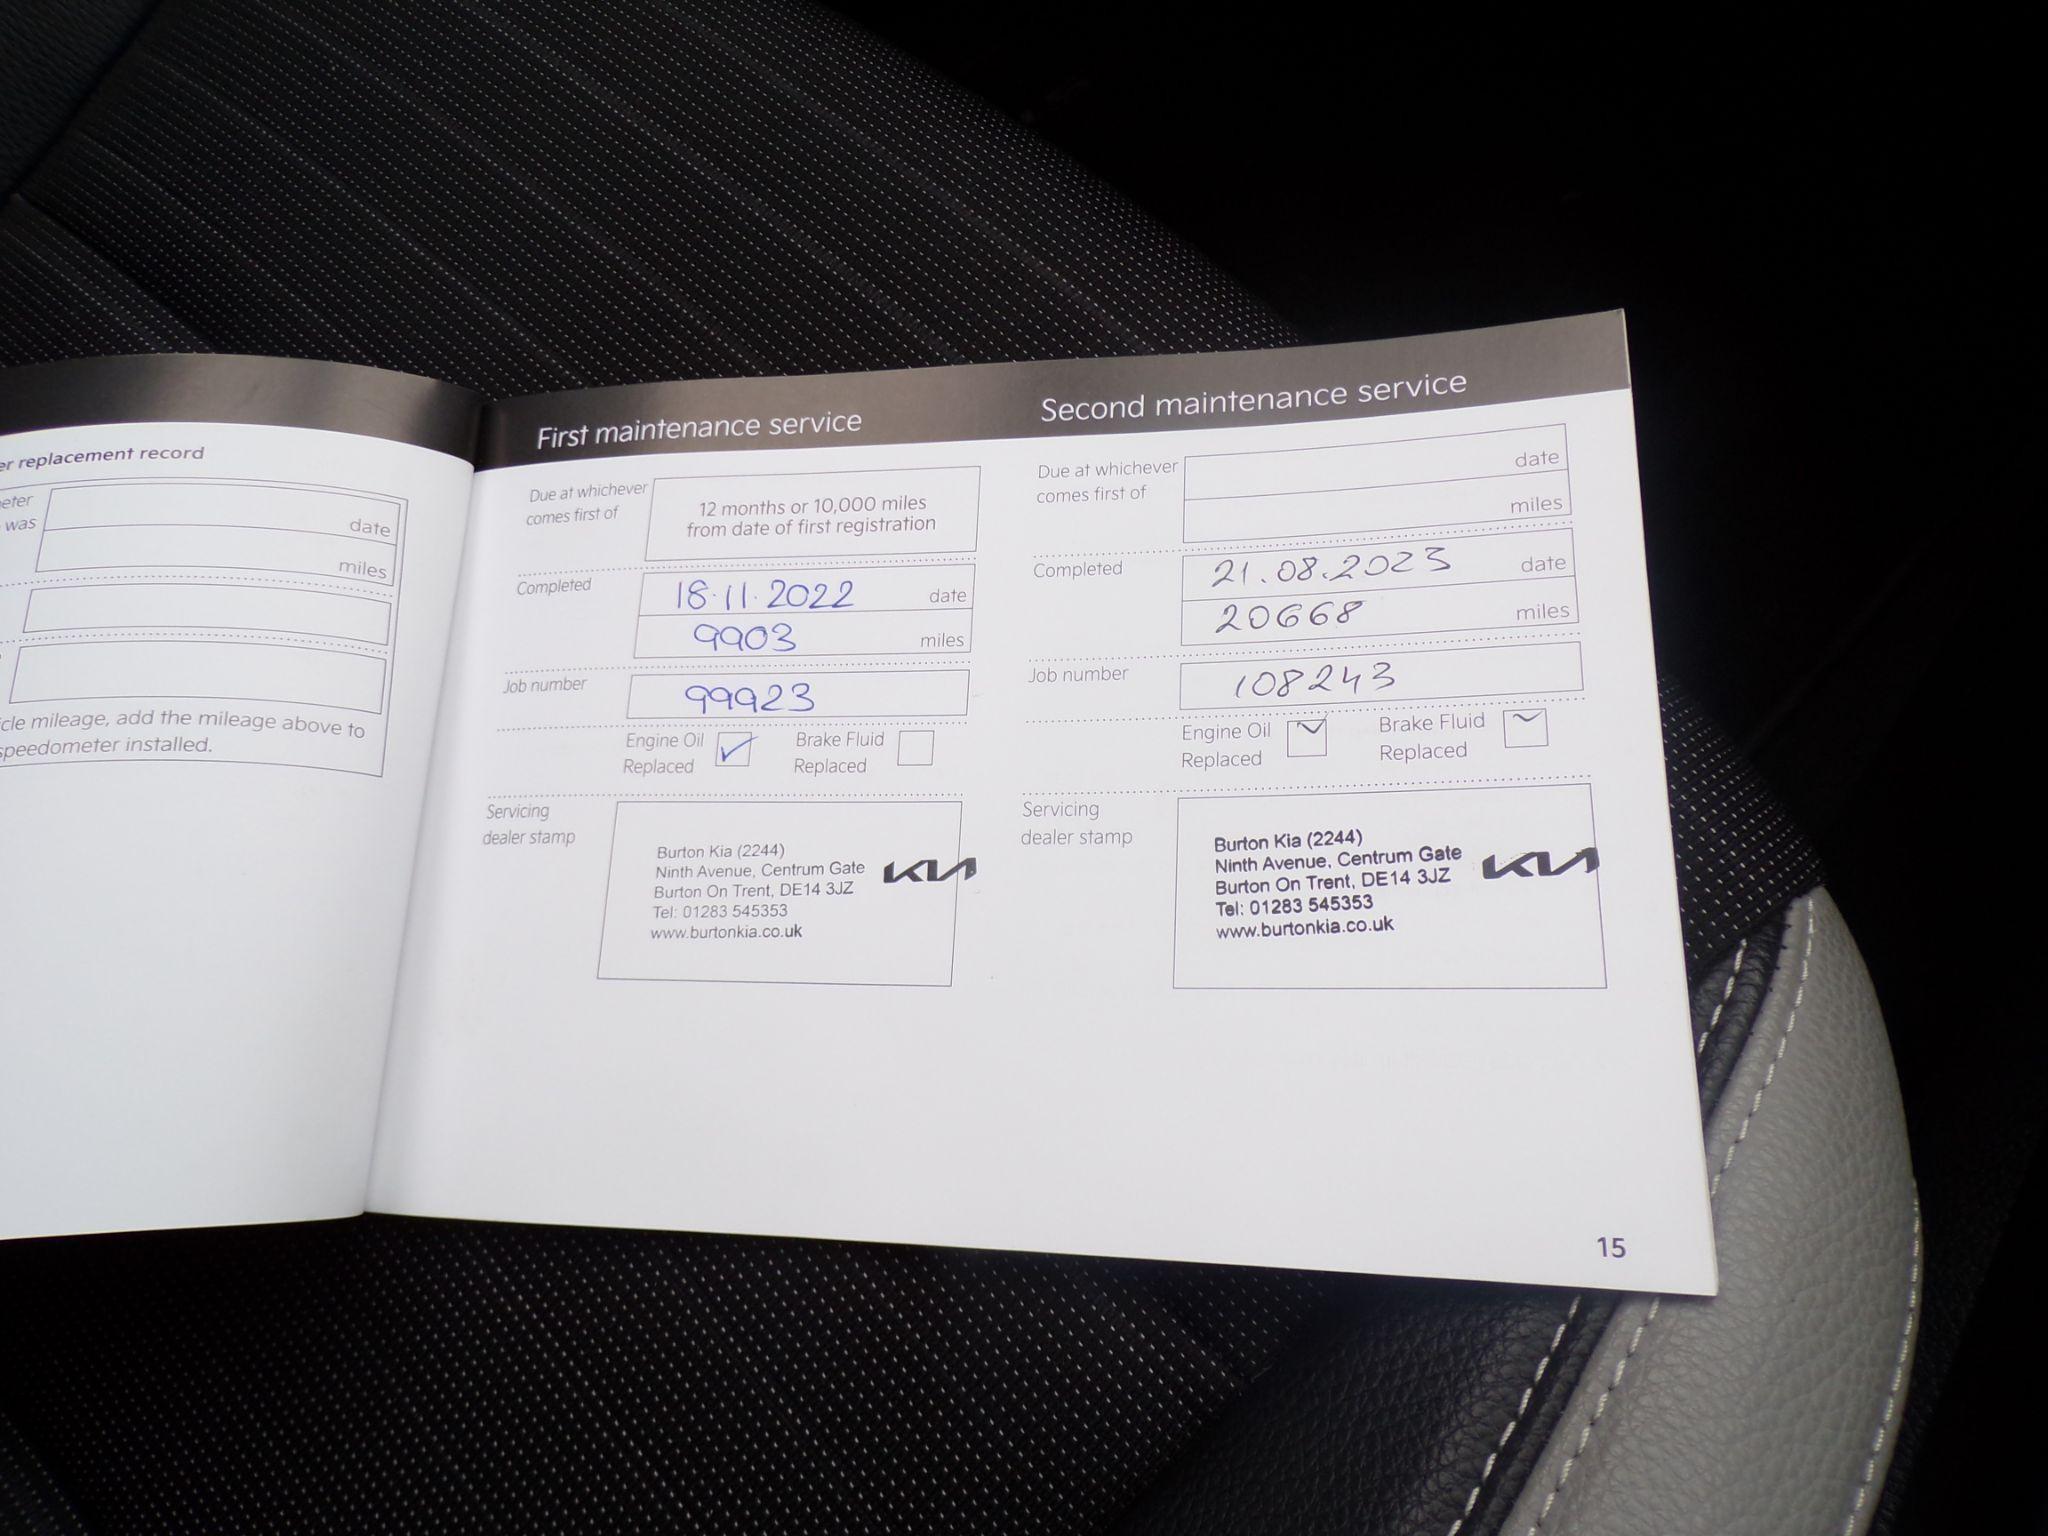 er replacement record
eter
was
date
miles
cle mileage, add the mileage above to
speedometer installed.
First maintenance service
Due at whichever
comes first of
12 months or 10,000 miles
from date of first registration
Completed
18.11.2022 date
9903 miles
Job number
99923
Engine Oil
Replaced
Brake Fluid
Replaced
Servicing
dealer stamp
Burton Kia (2244)
Ninth Avenue, Centrum Gate
Burton On Trent, DE14 3JZ
Tel: 01283 545353
www.burtonkia.co.uk
KIA
Second maintenance service
Due at whichever
comes first of
date
miles
Completed
21.08.2023 date
20668 miles
Job number
108243
Engine Oil
Replaced
Brake Fluid
Replaced
Servicing
dealer stamp
Burton Kia (2244)
Ninth Avenue, Centrum Gate
Burton On Trent, DE14 3JZ
Tel: 01283 545353
www.burtonkia.co.uk
KIA
15